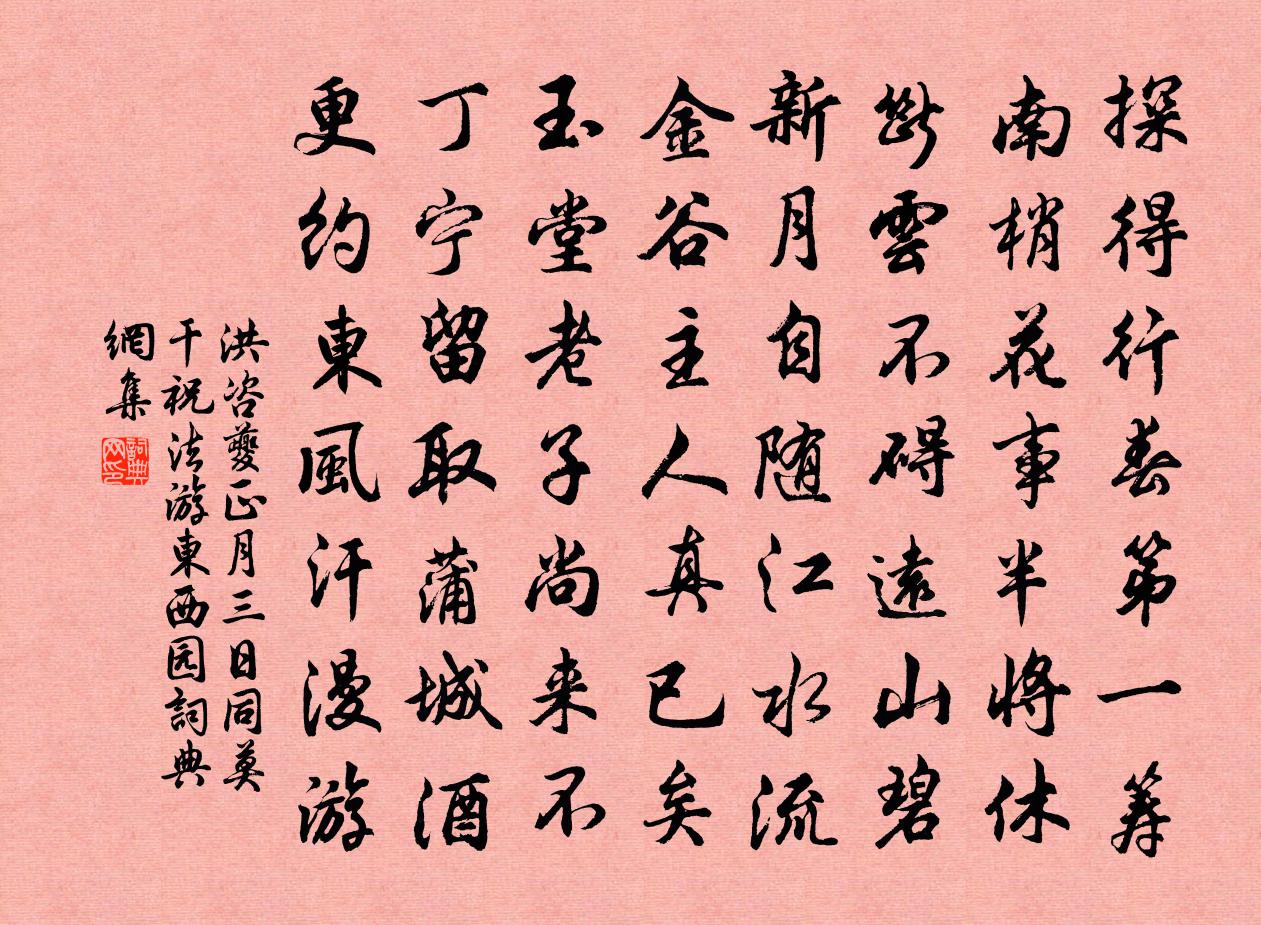 探得行春第一筹
南梢花事半将休
断雲不碍遠山碧
新月自随江水流
金谷主人真已矣
玉堂老子尚来不
丁宁留取蒲城酒
更约東風汗漫游
洪咨夔正月三日同莫
干祝法游東西园詞典
網集
詞典网印